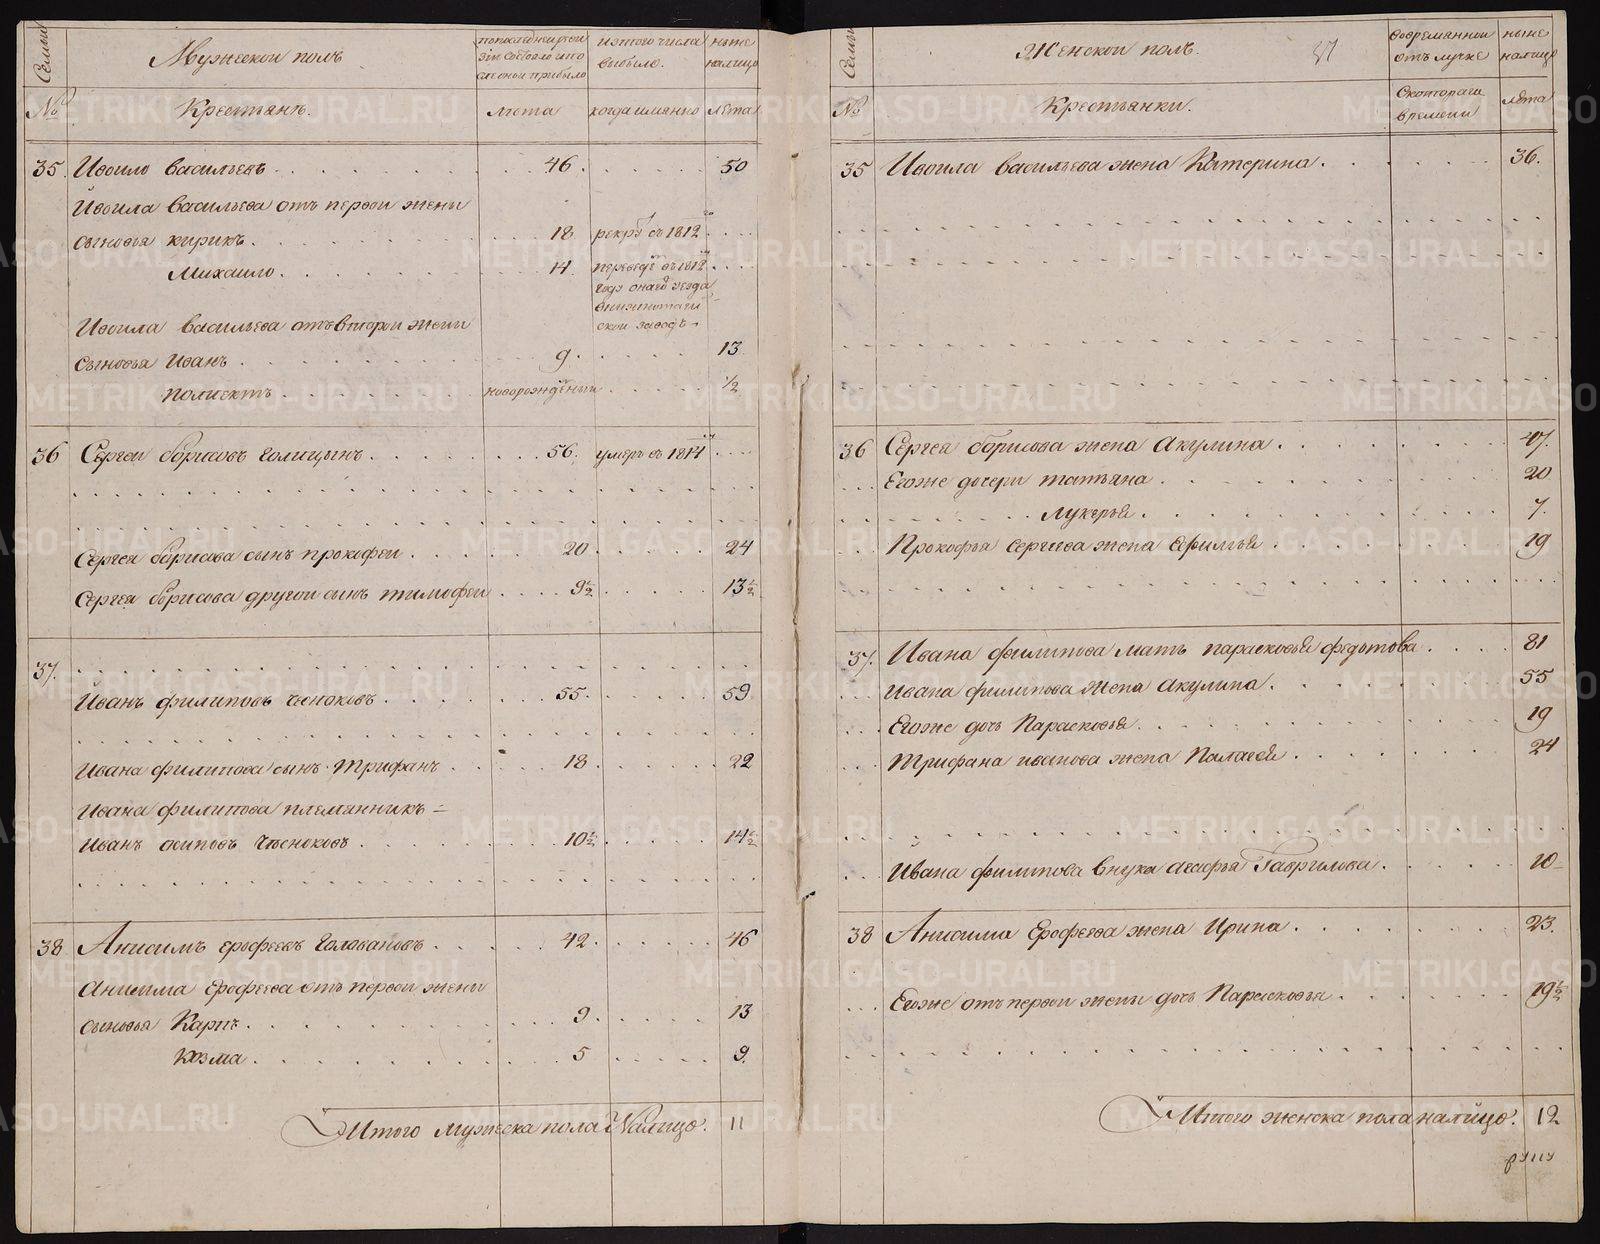 Семьи
Мужескои полъ
по последнеи реви
зіи состояло и по
сле онои прибыло
изтого числа
выбыло.
ныне
налицо
№
Крестьянъ.
лѣта
когда имянно
лѣта
35. Ивоило Васильевъ 46. 50
Ивоила Васильева отъ первои жены
сыновья кирикъ. 18 рекру съ 1812
Михаило. 14
Ивоила Васильева отъ второи жены
сыновья Иванъ. 9. 13
Полиектъ новорожденыи ½
36 Сергеи борисовъ Голицынъ. 56. умеръ въ 1814
Сергея борисова сынъ прокофеи 20 24
Сергея борисова другои сынъ тимофеи 9½ 13½
37.
Иванъ филиповъ чесноковъ. 55. 59
Ивана филипова сынъ Трифанъ 18 22
Ивана филипова племянникъ =
Иванъ осиповъ Чесноковъ 10½ 14½
38 Анисимъ ерофеевъ Головановъ 42. 46
Анисима Ерофеева отъ первои жены
сыновья Карпъ. 9. 13
Козма. 5 9.
Итого мужеска пола Налицо. 11
Семьи
Женскои полъ.
37
во временнои
отълучке
ныне
налицо
№
Крестьянки.
Скоторага
времени
лѣта
35 Ивоила Васильева жена Катерина. 36.
36 Сергея борисова жена Акулина. 47.
Егоже дочери татьяна 20
Лукерья. 7.
Прокофья Сергеева жена Афимья 19
37. Ивана филипова мать парасковья федотова. 81
Ивана филипова жена Акулина. 55
Егоже дочь Парасковья. 19
Трифана иванова жена Палагея. 24
Ивана филипова внука агафья Гаврилова. 10
38 Анисима Ерофеева жена Ирина. 23.
Егоже отъ первои жены дочь Парасковья 19½
Итого женска пола налицо. 12
METRIKI.GASO-URAL.RU